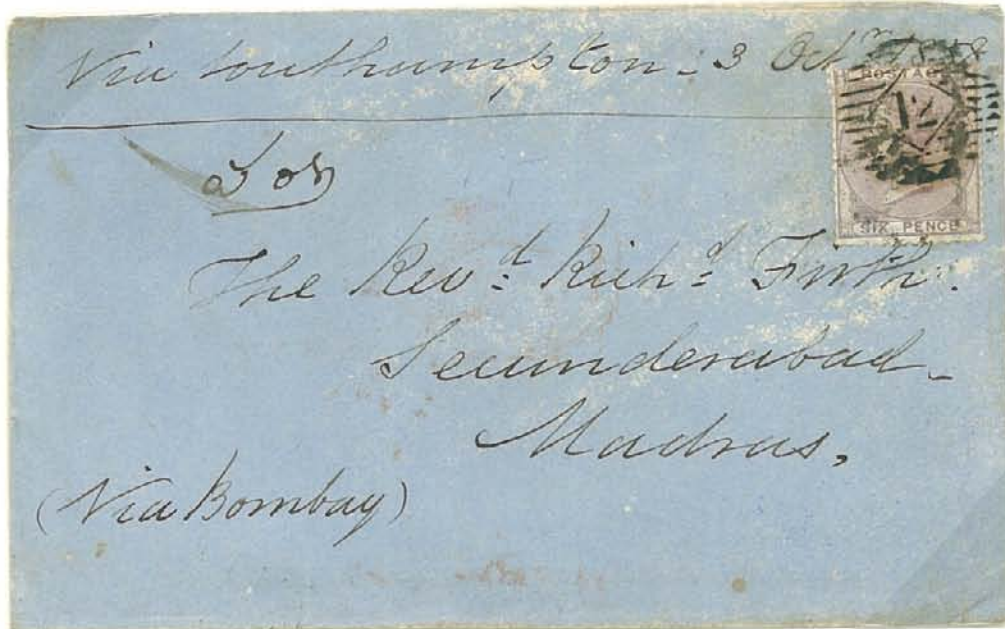 Via Southampton - 3 Oct
POSTAG
12
SIX PENCE
The Revd. Richd. Firth.
Secunderabad -
Madras,
(Via Bombay)